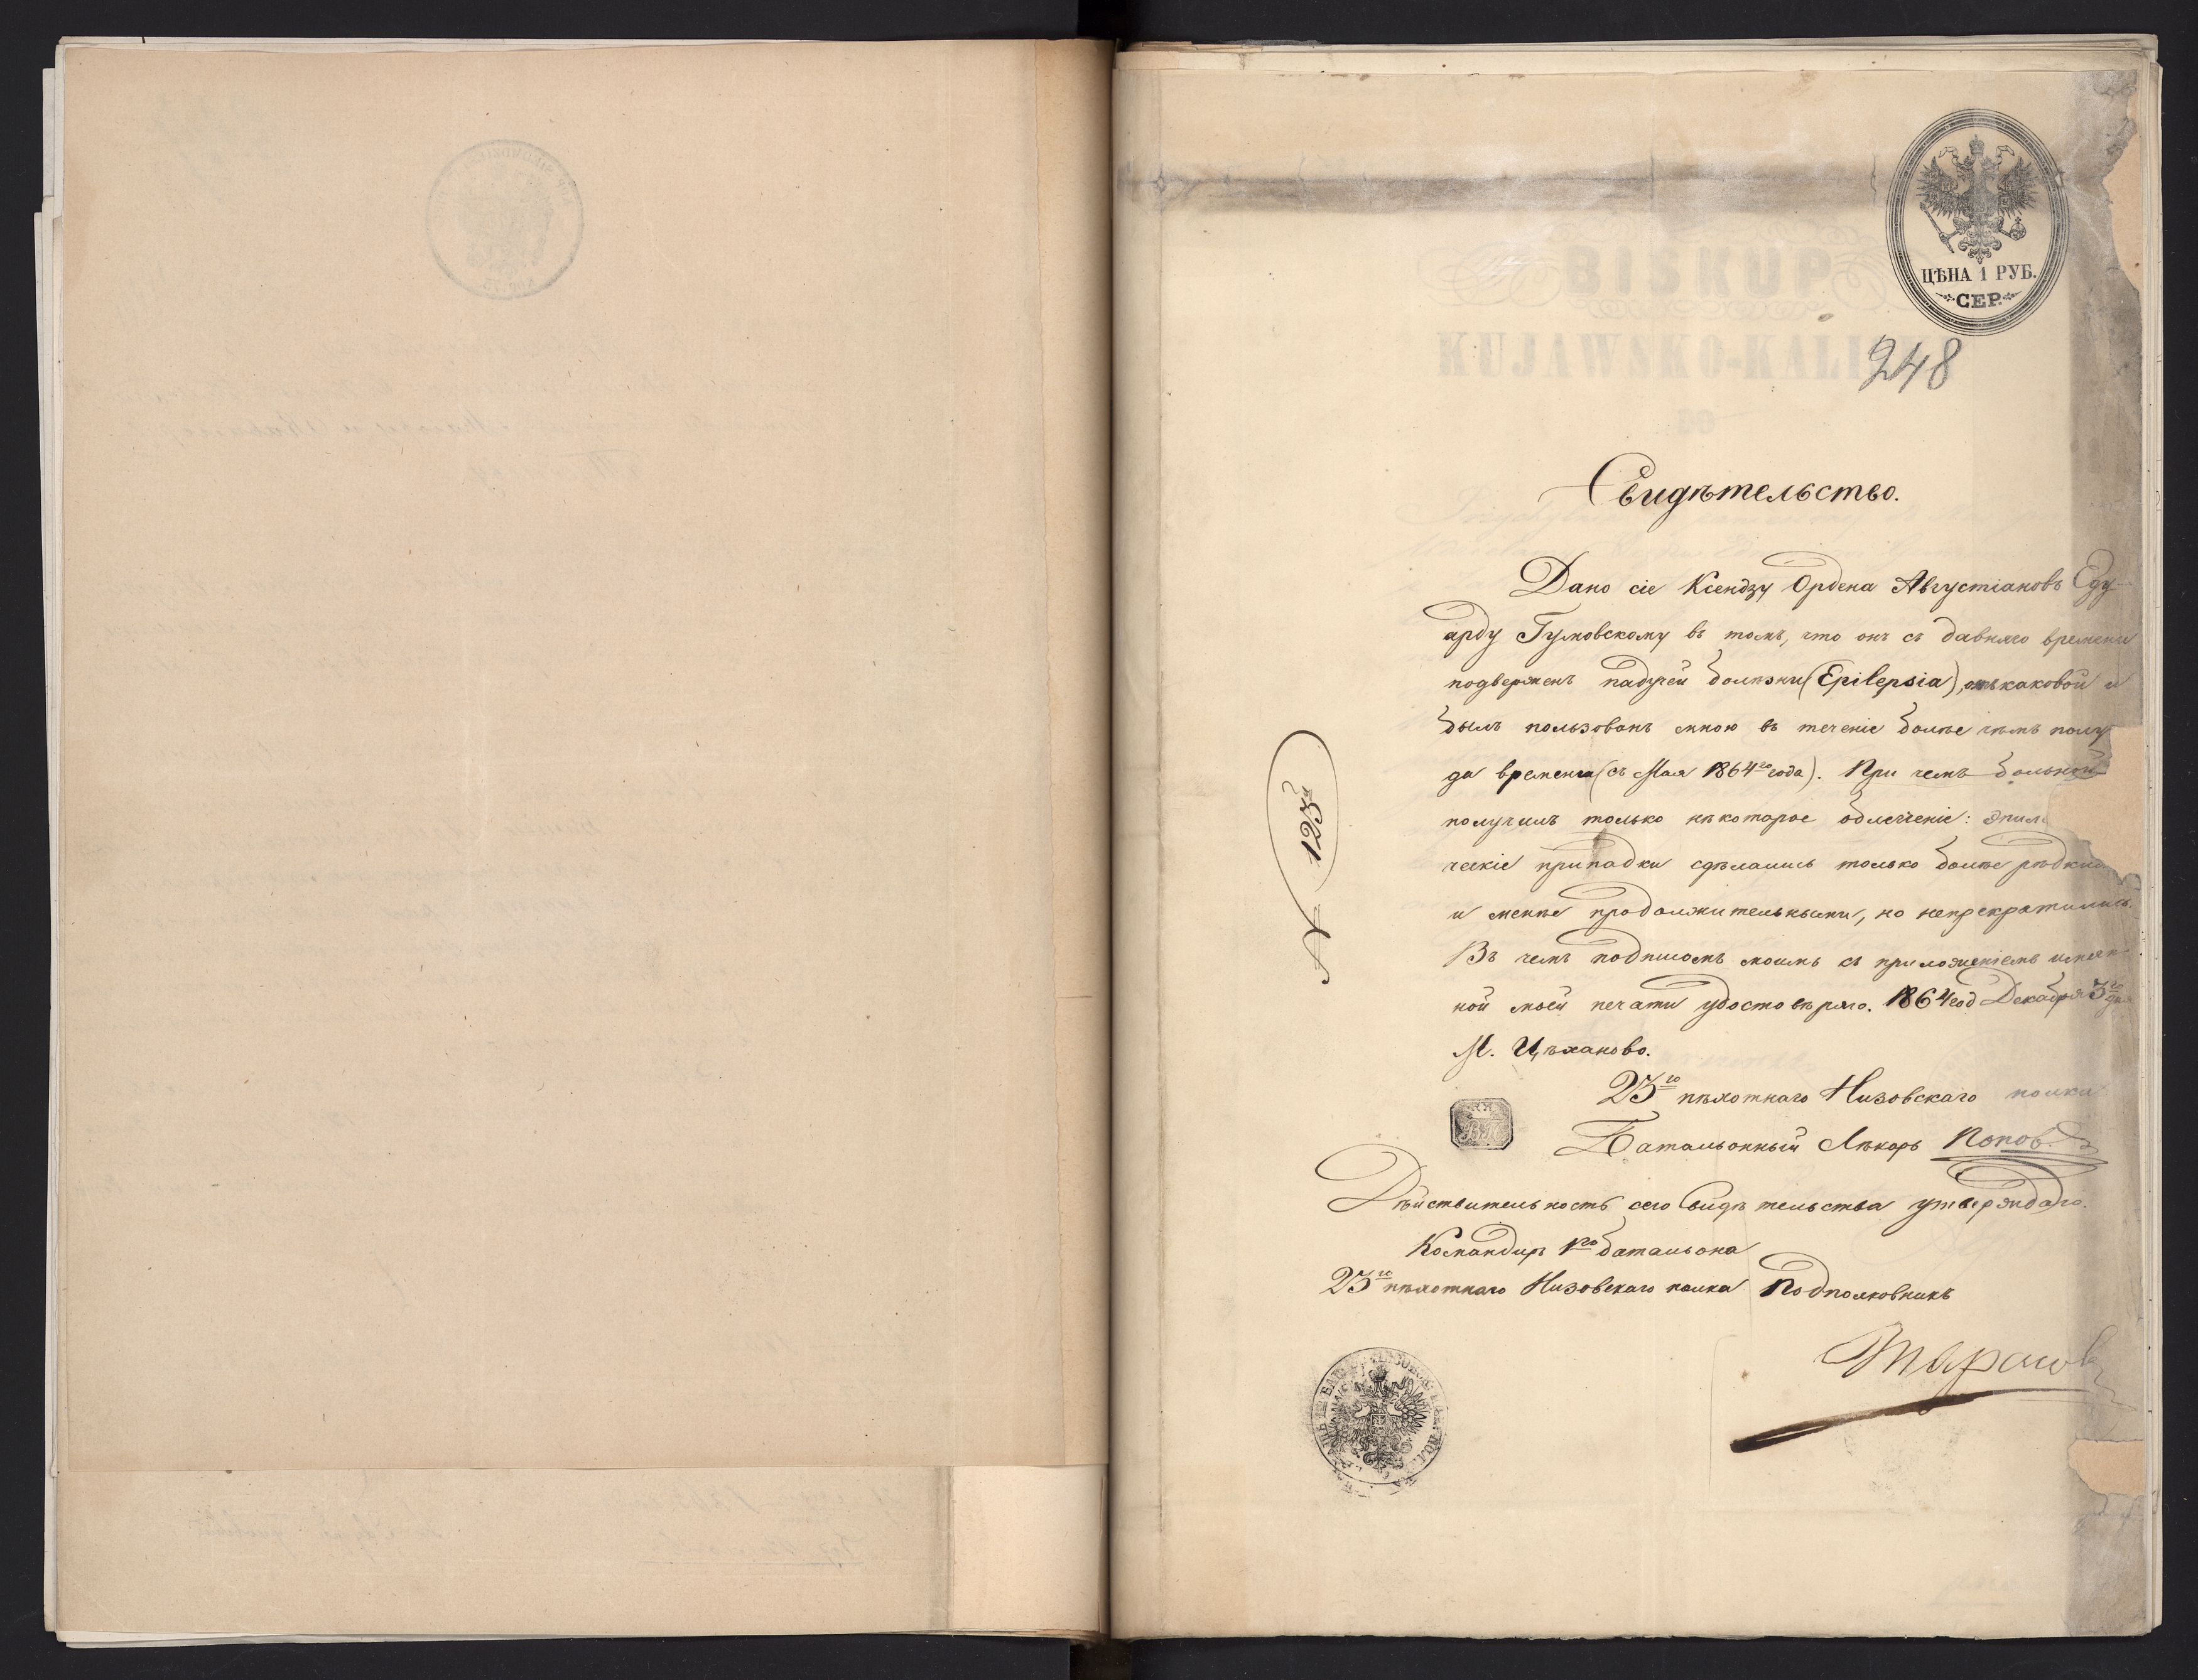 ЦѢНА 1 РУБ.
СЕР.
BISKUP
KUJAWSKO-KALI
248
Свидѣтельство.
Дано сіе Ксендзу Ордена Августіановъ Еду-
арду Гумовскому въ томъ, что онъ съ давняго времени
подверженъ падучей болѣзни (Epilepsia), отъ каковой и
былъ пользованъ мною въ теченіе болѣе чѣмъ полу
да времени (съ Мая 1864го года). При чемъ больной
получилъ только нѣкоторое облегченіе: эпил
ческіе припадки сдѣлались только болѣе рѣдки
и менѣе продолжительными, но непрекратились.
Въ чемъ подписомъ моимъ съ приложеніемъ имян-
ной моей печати удостовѣряю. 1864 год Декабря 3го дня
М. Цѣханово.
№ 125й
23го пѣхотнаго Низовскаго полка
Батальонный Лѣкарь Поповъ
Дѣйствительность сего Свидѣтельства утверждаю.
Командиръ 1го баталіона
23го пѣхотнаго Низовскаго полка Подполковникъ